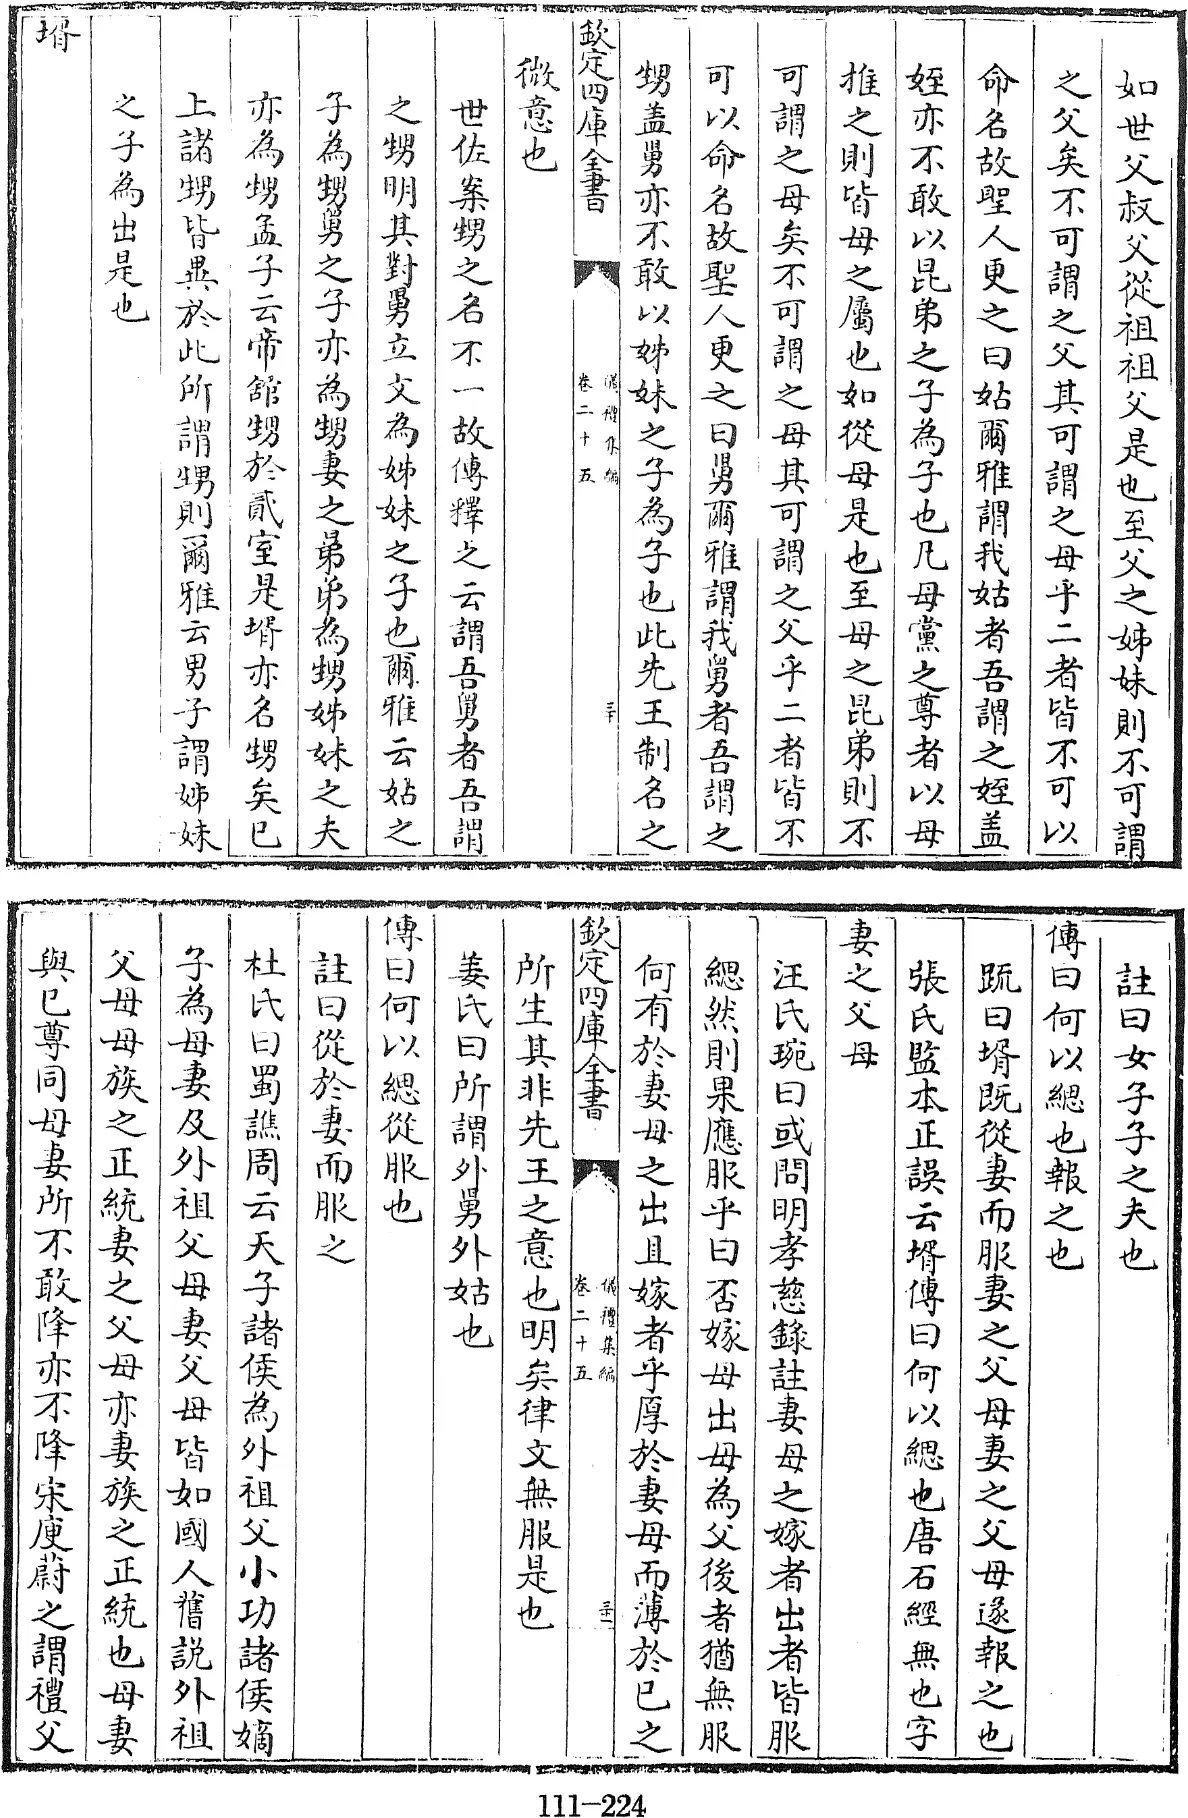 如世父叔父從祖祖父是也至父之姊妹則不可謂
之父矣不可謂之父其可謂之母乎二者皆不可以
命名故聖人更之曰姑爾雅謂我姑者吾謂之姪盖
姪亦不敢以昆弟之子為子也凡母黨之尊者以母
推之則皆母之屬也如從母是也至母之昆弟則不
可謂之母矣不可謂之母其可謂之父乎二者皆不
可以命名故聖人更之曰舅爾雅謂我舅者吾謂之
甥盖舅亦不敢以姊妹之子為子也此先王制名之
欽定四庫全書
儀禮集編
卷二十五
三十
微意也
世佐案甥之名不一故傳釋之云謂吾舅者吾謂
之甥明其對舅立文為姊妹之子也爾雅云姑之
子為甥舅之子亦為甥妻之晜弟為甥姊妹之夫
亦為甥孟子云帝舘甥於貳室是壻亦名甥矣已
上諸甥皆異於此所謂甥則爾雅云男子謂姊妹
之子為出是也
壻
註曰女子子之夫也
傳曰何以緦也報之也
疏曰壻既從妻而服妻之父母妻之父母遂報之也
張氏監本正誤云壻傳曰何以緦也唐石經無也字
妻之父母
汪氏琬曰或問明孝慈錄註妻母之嫁者出者皆服
緦然則果應服乎曰否嫁母出母為父後者猶無服
何有於妻母之出且嫁者乎厚於妻母而薄於已之
欽定四庫全書
儀禮集編
卷二十五
三十一
所生其非先王之意也明矣律文無服是也
姜氏曰所謂外舅外姑也
傳曰何以緦從服也
註曰從於妻而服之
杜氏曰蜀譙周云天子諸侯為外祖父小功諸侯嫡
子為母妻及外祖父母妻父母皆如國人舊說外祖
父母母族之正統妻之父母亦妻族之正統也母妻
與已尊同母妻所不敢降亦不降宋庾蔚之謂禮父
111-224